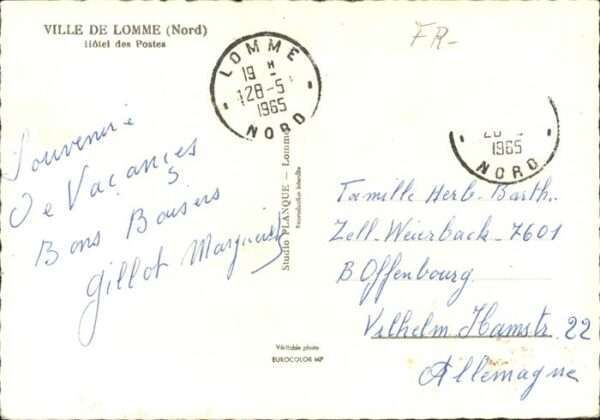 VILLE DE LOMME (Nord)
Hôtel des Postes
FR-
LOMME
19 H
28-5
1965
NORD
1965
NORD
Souvenirs
De Vacances
Bons Baisers
Gillot Marguerite
Studio PLANQUE — Lomme
Reproduction interdite
Véritable photo
EUROCOLOR MP
Familie Herb-Barth.
Zell-Weierback-7601
B Offenbourg
Vilhelm Hamstr 22
Allemagne